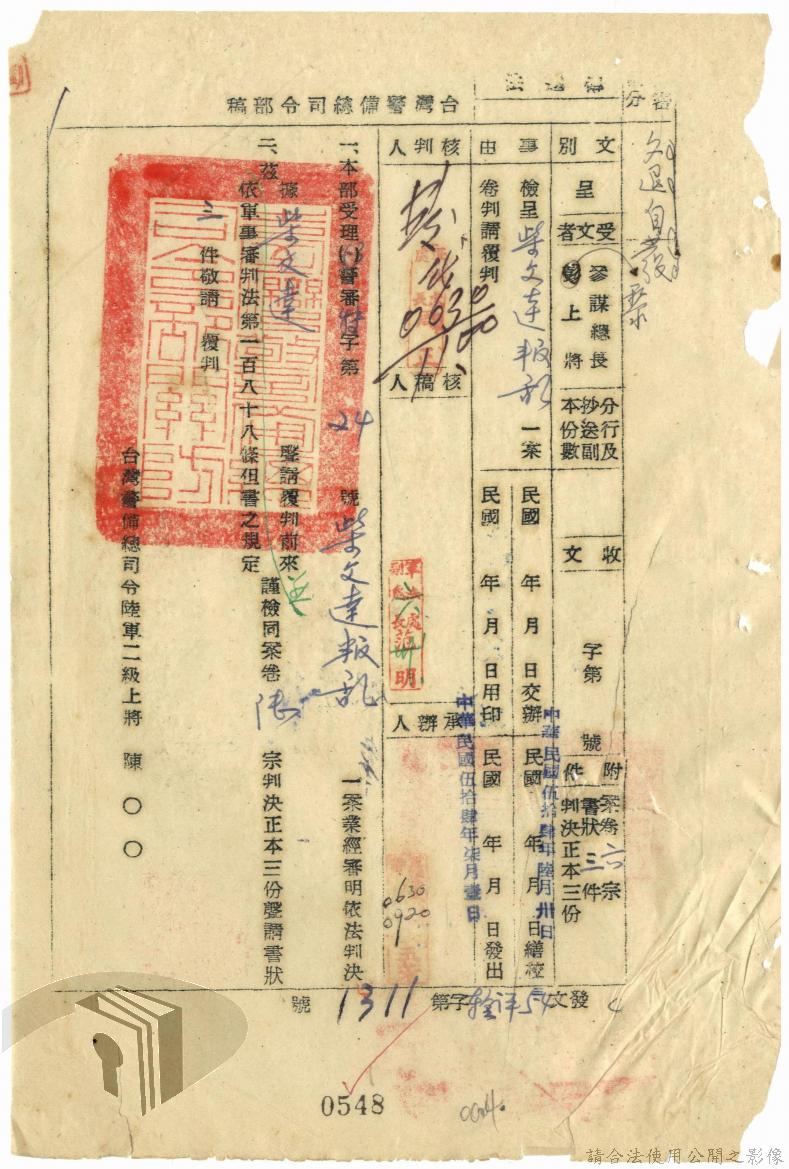 台灣警備總司令部稿
文別
呈
受文者
參謀總長
彭上將
分行及
抄送副
本份數
收文
字第　號
附件
案卷六宗
書狀三件
判決正本三份
事由
檢呈柴文達叛亂一案
卷判請覆判
民國　年　月　日交辦
民國　年　月　日用印
民國　年　月　日繕校
民國　年　月　日發出
中華民國伍拾肆年陸月卅日
中華民國伍拾肆年柒月壹日
核判人
0630
1100
核稿人
范明
承辦人
0630
0920
一、本部受理(　)警審特字第24號柴文達叛亂一案業經審明依法判決
二、茲據柴文達聲請覆判前來謹檢同案卷陸宗判決正本三份聲請書狀
三件敬請　覆判
依軍事審判法第一百八十八條但書之規定
台灣警備總司令陸軍二級上將陳〇〇
發文54
字第1311號
0548
請合法使用公開之影像